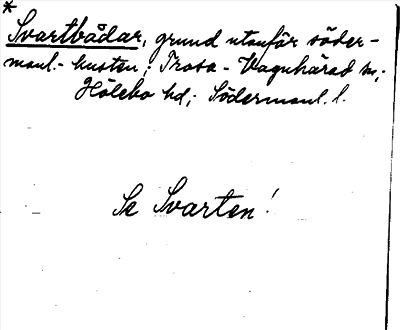 *
Svartbådar, grund utanför söder-
manl.-kusten; Trosa-Vagnhärad sn;
Hölebo hd; Södermanl. l.
Se Svarten!